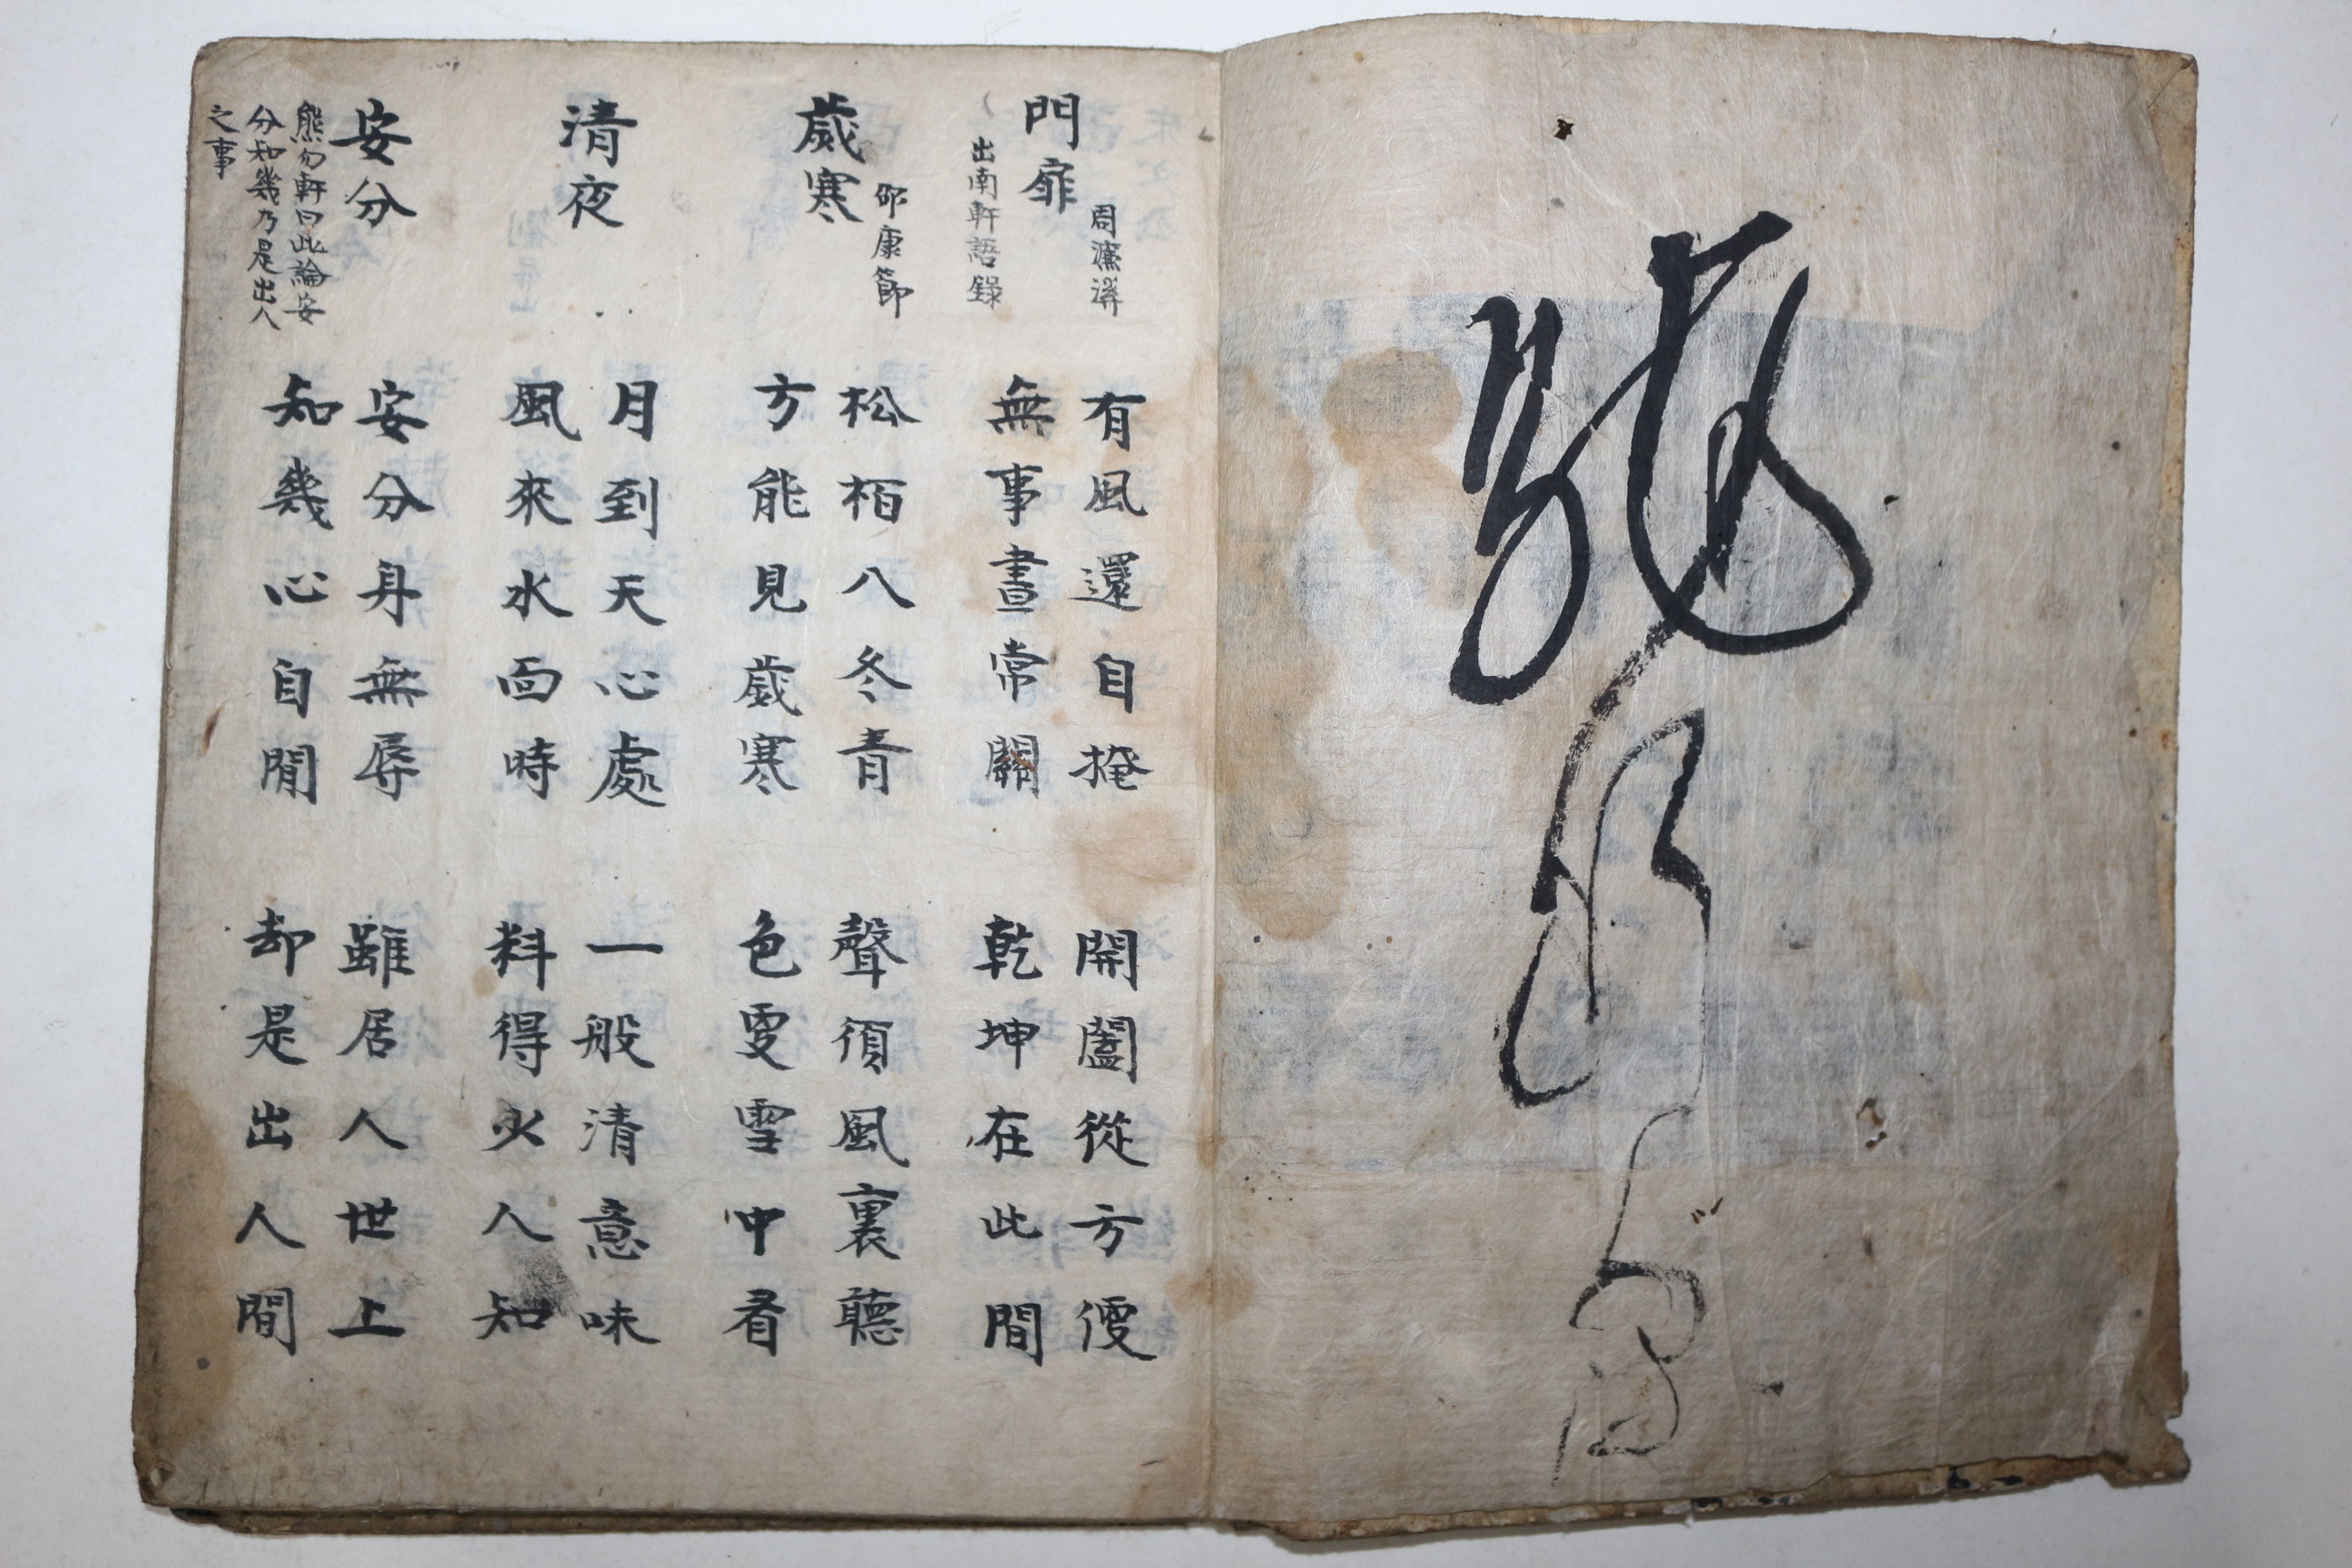 門扉
周濂溪
出南軒語錄
有風還自掩
無事晝常關
開闔從方便
乾坤在此間
歲寒
邵康節
松栢八冬青
方能見歲寒
聲須風裏聽
色更雪中看
清夜
月到天心處
風來水面時
一般清意味
料得少人知
安分
熊勿軒曰此論安
分知幾乃是出人
之事
安分身無辱
知幾心自閒
雖居人世上
却是出人間